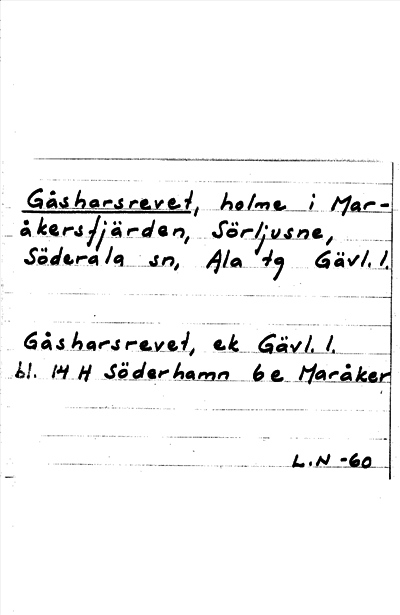 Gåsharsrevet, holme i Mar-
åkersfjärden, Sörljusne,
Söderala sn, Ala tg Gävl. l.
Gåsharsrevet, ek Gävl. l.
bl. 14 H Söderhamn 6 e Maråker
L.N -60